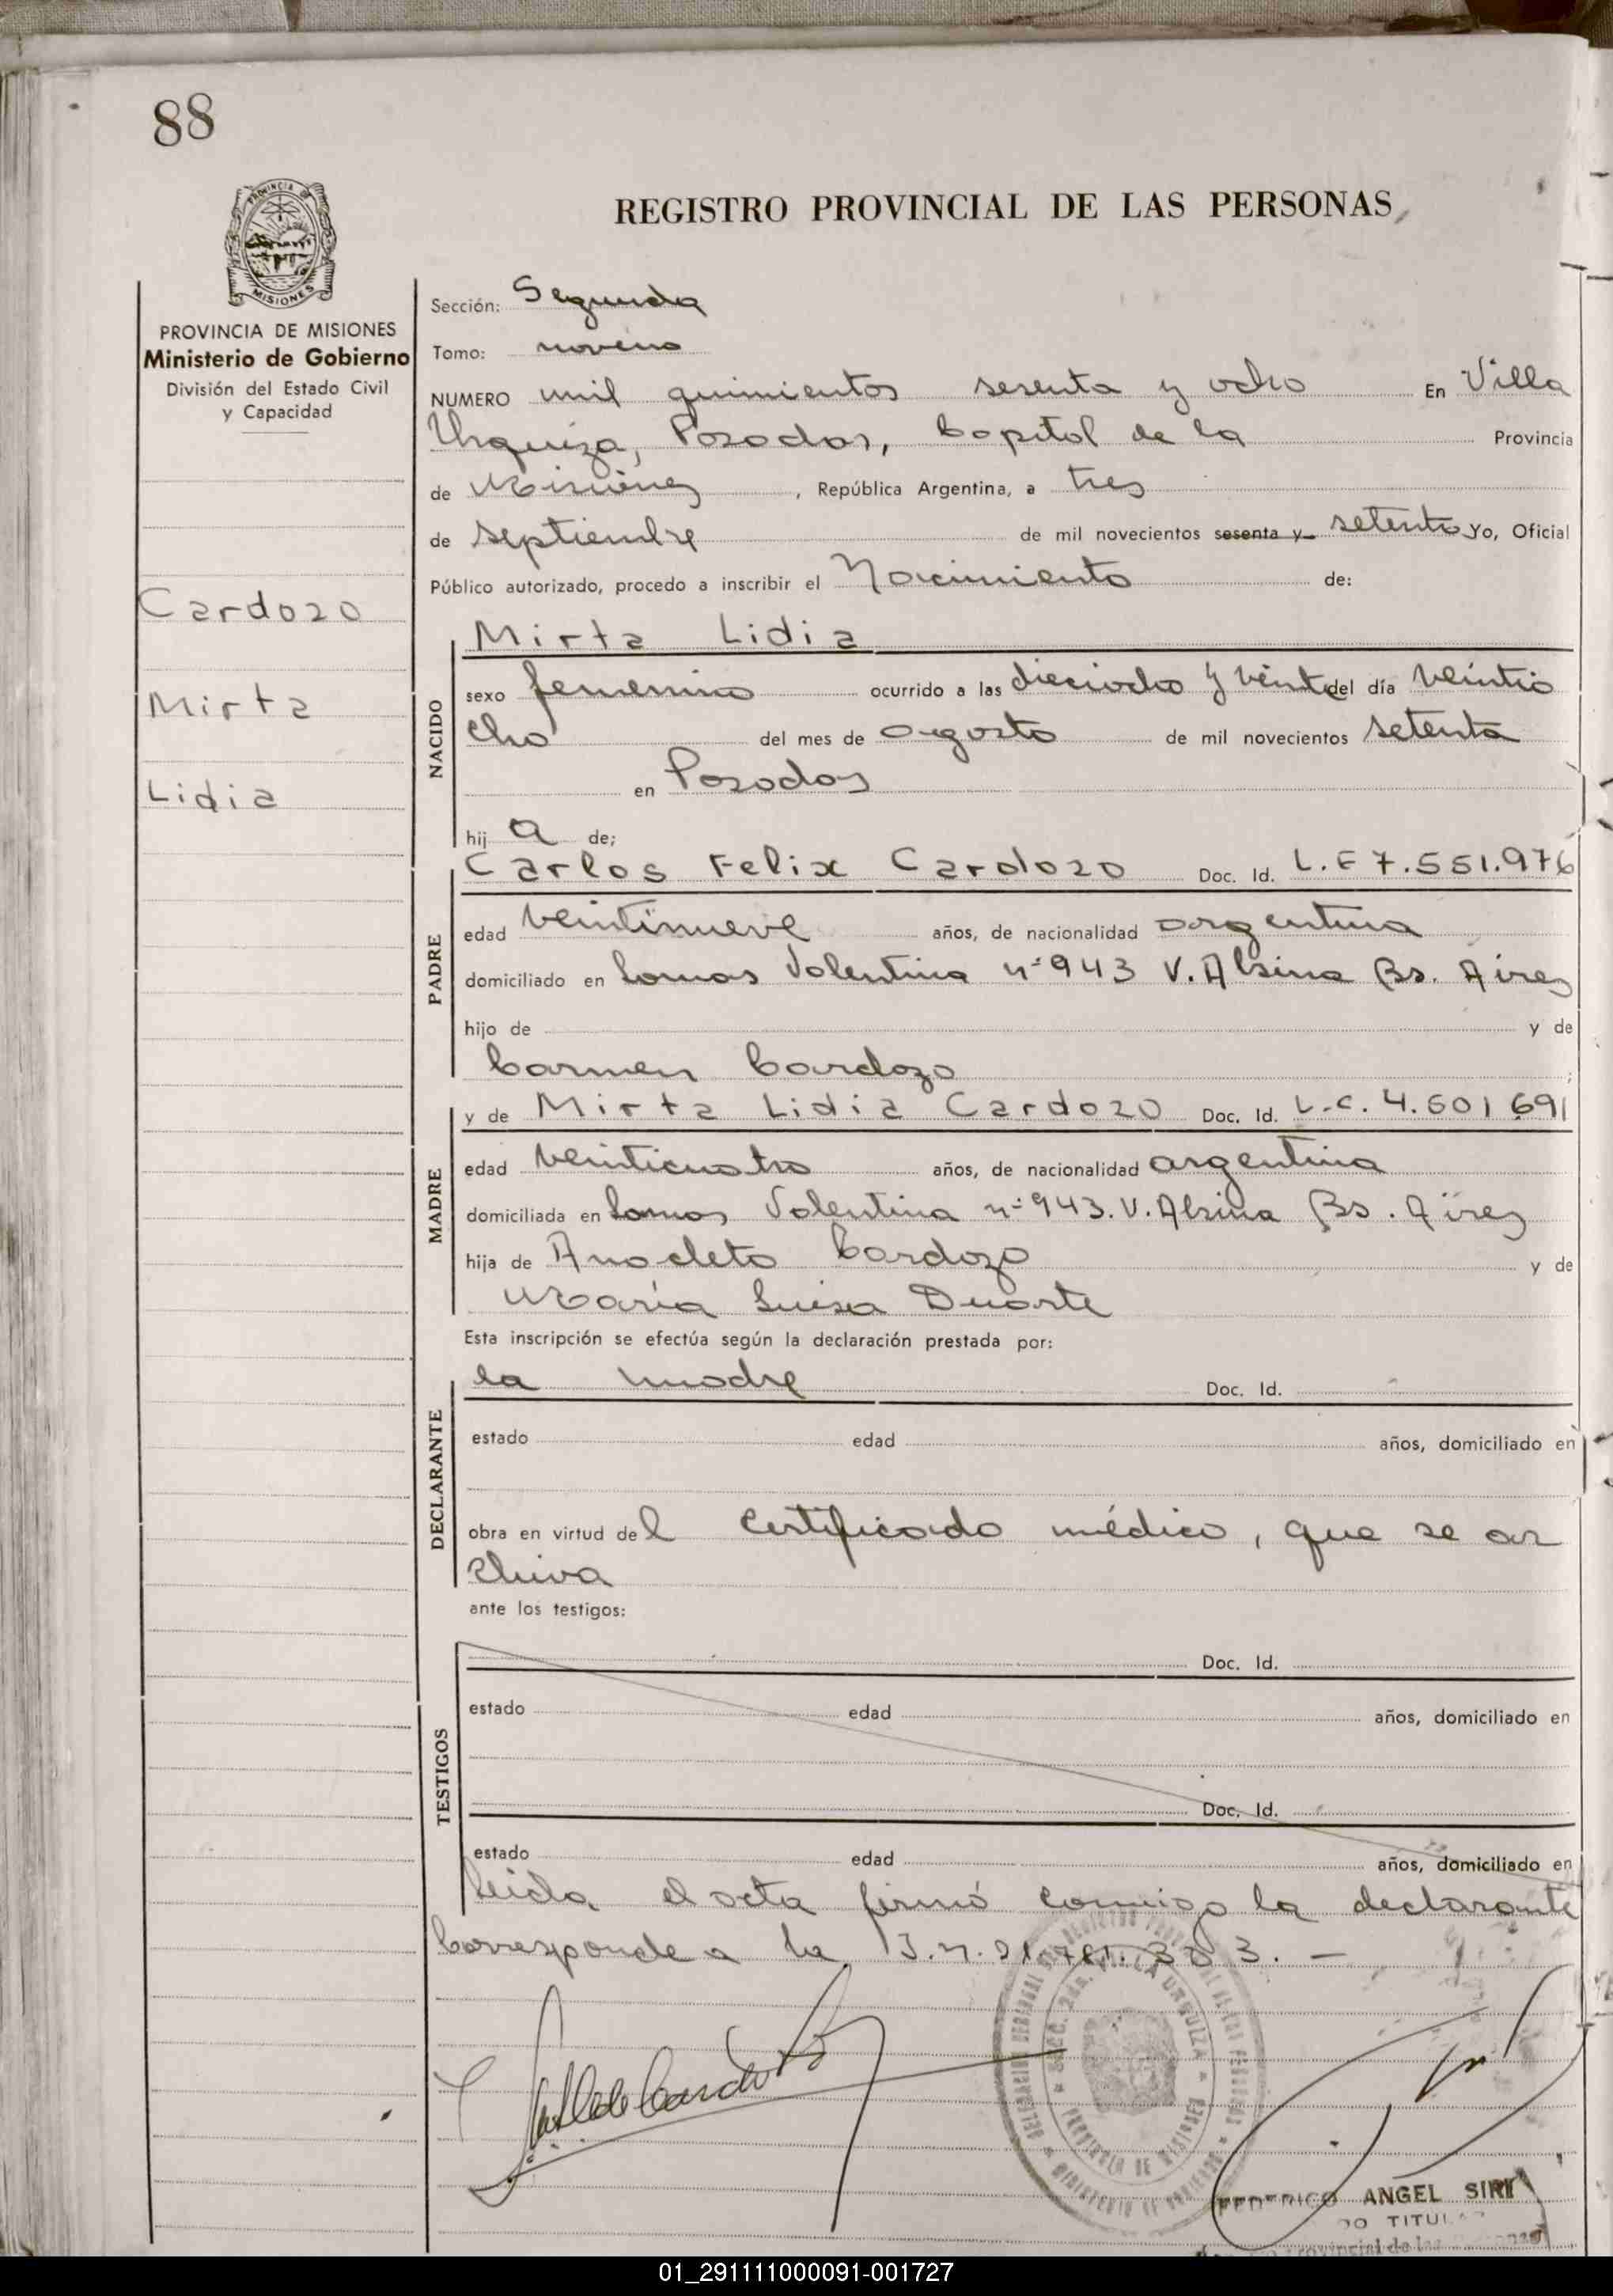 88
PROVINCIA DE
MISIONES
REGISTRO PROVINCIAL DE LAS PERSONAS
PROVINCIA DE MISIONES
Ministerio de Gobierno
División del Estado Civil
y Capacidad
Cardozo
Mirta
Lidia
Sección: Segunda
Tomo: noveno
NUMERO mil quinientos sesenta y ocho En Villa
Urquiza, Posadas, Capital de la Provincia
de Misiones, República Argentina, a tres
de septiembre de mil novecientos sesenta y setenta Yo, Oficial
Público autorizado, procedo a inscribir el Nacimiento de:
NACIDO
Mirta Lidia
sexo femenino ocurrido a las dieciocho y veinte del día veintio
cho del mes de agosto de mil novecientos setenta
en Posadas
hij a de;
PADRE
Carlos Felix Cardozo Doc. Id. L.E 7.551.976
edad veintinueve años, de nacionalidad argentina
domiciliado en Lomas Valentina nº 943 V. Alsina Bs. Aires
hijo de y de
Carmen Cardozo ;
MADRE
y de Mirta Lidia Cardozo Doc. Id. L.C. 4.601 691
edad veinticuatro años, de nacionalidad argentina
domiciliada en Lomas Valentina nº 943. V. Alsina Bs. Aires
hija de Anacleto Cardozo y de
María Luisa Duarte
Esta inscripción se efectúa según la declaración prestada por:
DECLARANTE
la madre Doc. Id.
estado edad años, domiciliado en
obra en virtud del certificado médico, que se ar
chiva
ante los testigos:
TESTIGOS
Doc. Id.
estado edad años, domiciliado en
Doc. Id.
estado edad años, domiciliado en
Leida el acta firmó conmigo la declarante
Corresponde a la
FEDERICO ANGEL SIRI
TITULAR
Provincial de las
01_291111000091-001727